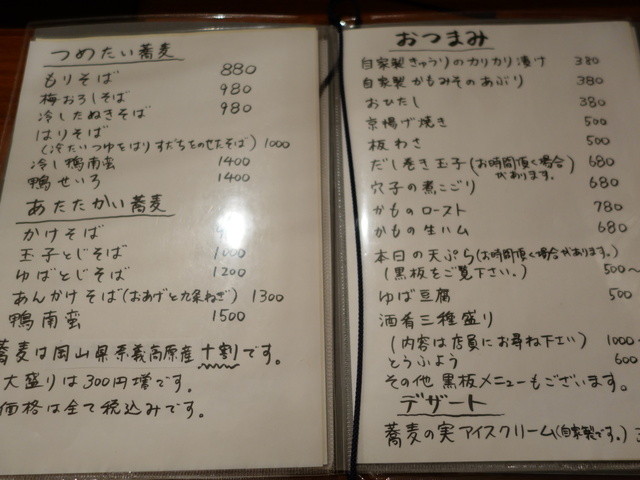 つめたい蕎麦
もりそば 880
梅おろしそば 980
冷したぬきそば 980
はりそば
(冷たいつゆをはりすだちをのせたそば) 1000
冷し鴨南蛮 1400
鴨せいろ 1400
あたたかい蕎麦
かけそば
玉子とじそば 1000
ゆばとじそば 1200
あんかけそば(おあげと九条ねぎ) 1300
鴨南蛮 1500
蕎麦は岡山県 高原産 十割です。
大盛りは300円増です。
価格は全て税込みです。
おつまみ
自家製きゅうりのカリカリ漬け 380
自家製かもみそのあぶり 380
おひたし 380
京揚げ焼き 500
板わさ 500
だし巻き玉子(お時間頂く場合があります。) 680
穴子の煮こごり 680
かものロースト 780
かもの生ハム 680
本日の天ぷら(お時間頂く場合があります。)
(黒板をご覧下さい。) 500〜
ゆば豆腐 500
酒肴三種盛り
(内容は店員にお尋ね下さい) 1000〜
とうふよう 600
その他 黒板メニューもございます。
デザート
蕎麦の実アイスクリーム(自家製です。)